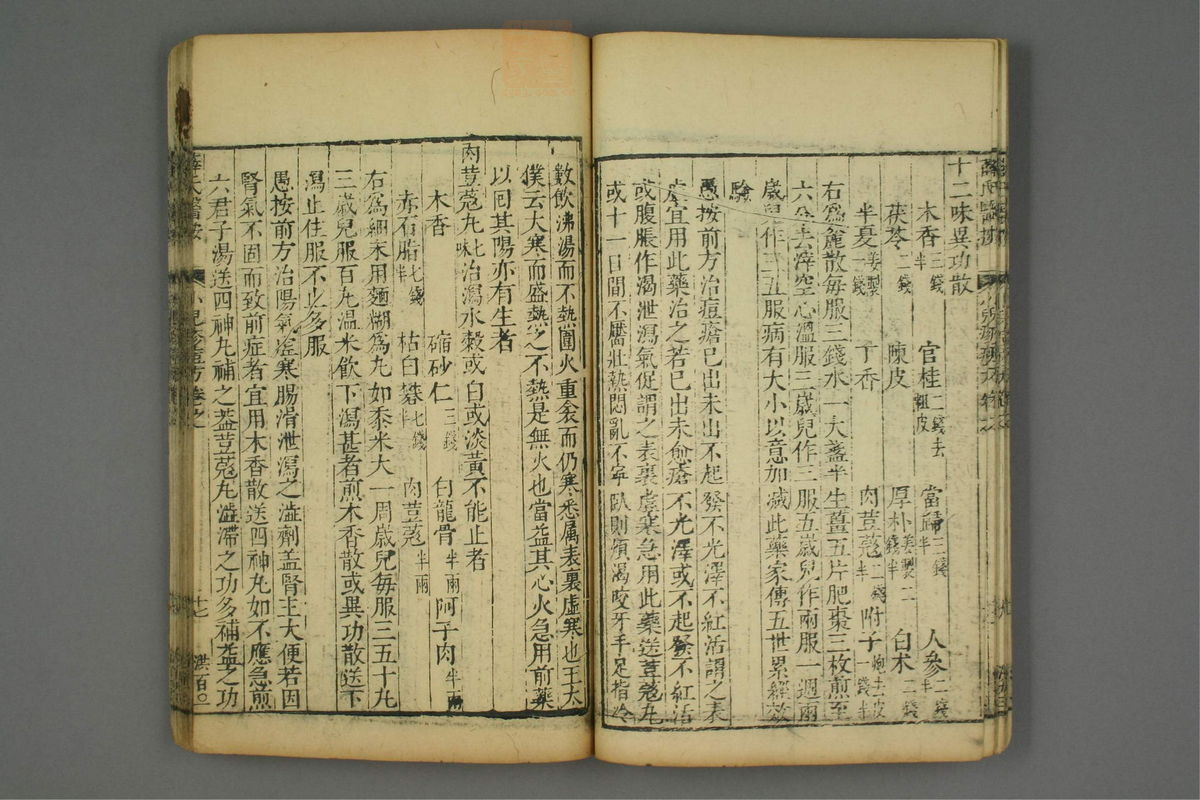 十二味異功散
木香三錢半 官桂二錢去粗皮 當歸三錢半 人參二錢半
茯苓二錢 陳皮 厚朴姜製二錢半 白朮二錢
半夏姜製一錢 丁香 肉荳蔻二錢半 附子炮去皮一錢半
右爲麄散每服三錢水一大盞半生薑五片肥棗三枚煎至
六分去滓空心溫服三歲兒作三服五歲兒作兩服一週兩
歲兒作三五服病有大小以意加減此藥家傳五世累經效
驗
愚按前方治痘瘡已出未出不起發不光澤不紅活謂之表
虛宜用此藥治之若已出未愈瘡不光澤或不起發不紅活
或腹脹作渴泄瀉氣促謂之表裏虛寒急用此藥送荳蔻丸
或十一日間不靨壯熱悶亂不寧臥則煩渴咬牙手足指冷
數飲沸湯而不熱圍火重衾而仍寒悉属表裏虛寒也王太
僕云大寒而盛熱之不熱是無火也當益其心火急用前藥
以回其陽亦有生者
肉荳蔻丸七味治瀉水穀或白或淡黃不能止者
木香 磠砂仁三錢 白龍骨半兩 訶子肉半兩
赤石脂七錢半 枯白礬七錢半 肉荳蔻半兩
右爲細末用麵糊爲丸如黍米大一周歲兒每服三五十丸
三歲兒服百丸温米飲下瀉甚者煎木香散或異功散送下
瀉止住服不必多服
愚按前方治陽氣虛寒腸滑泄瀉之澁劑盖腎主大便若因
腎氣不固而致前症者宜用木香散送四神丸如不應急煎
六君子湯送四神丸補之盖荳蔻丸澁滯之功多補益之功
薛氏醫按 小兒痘疹方卷之 十七